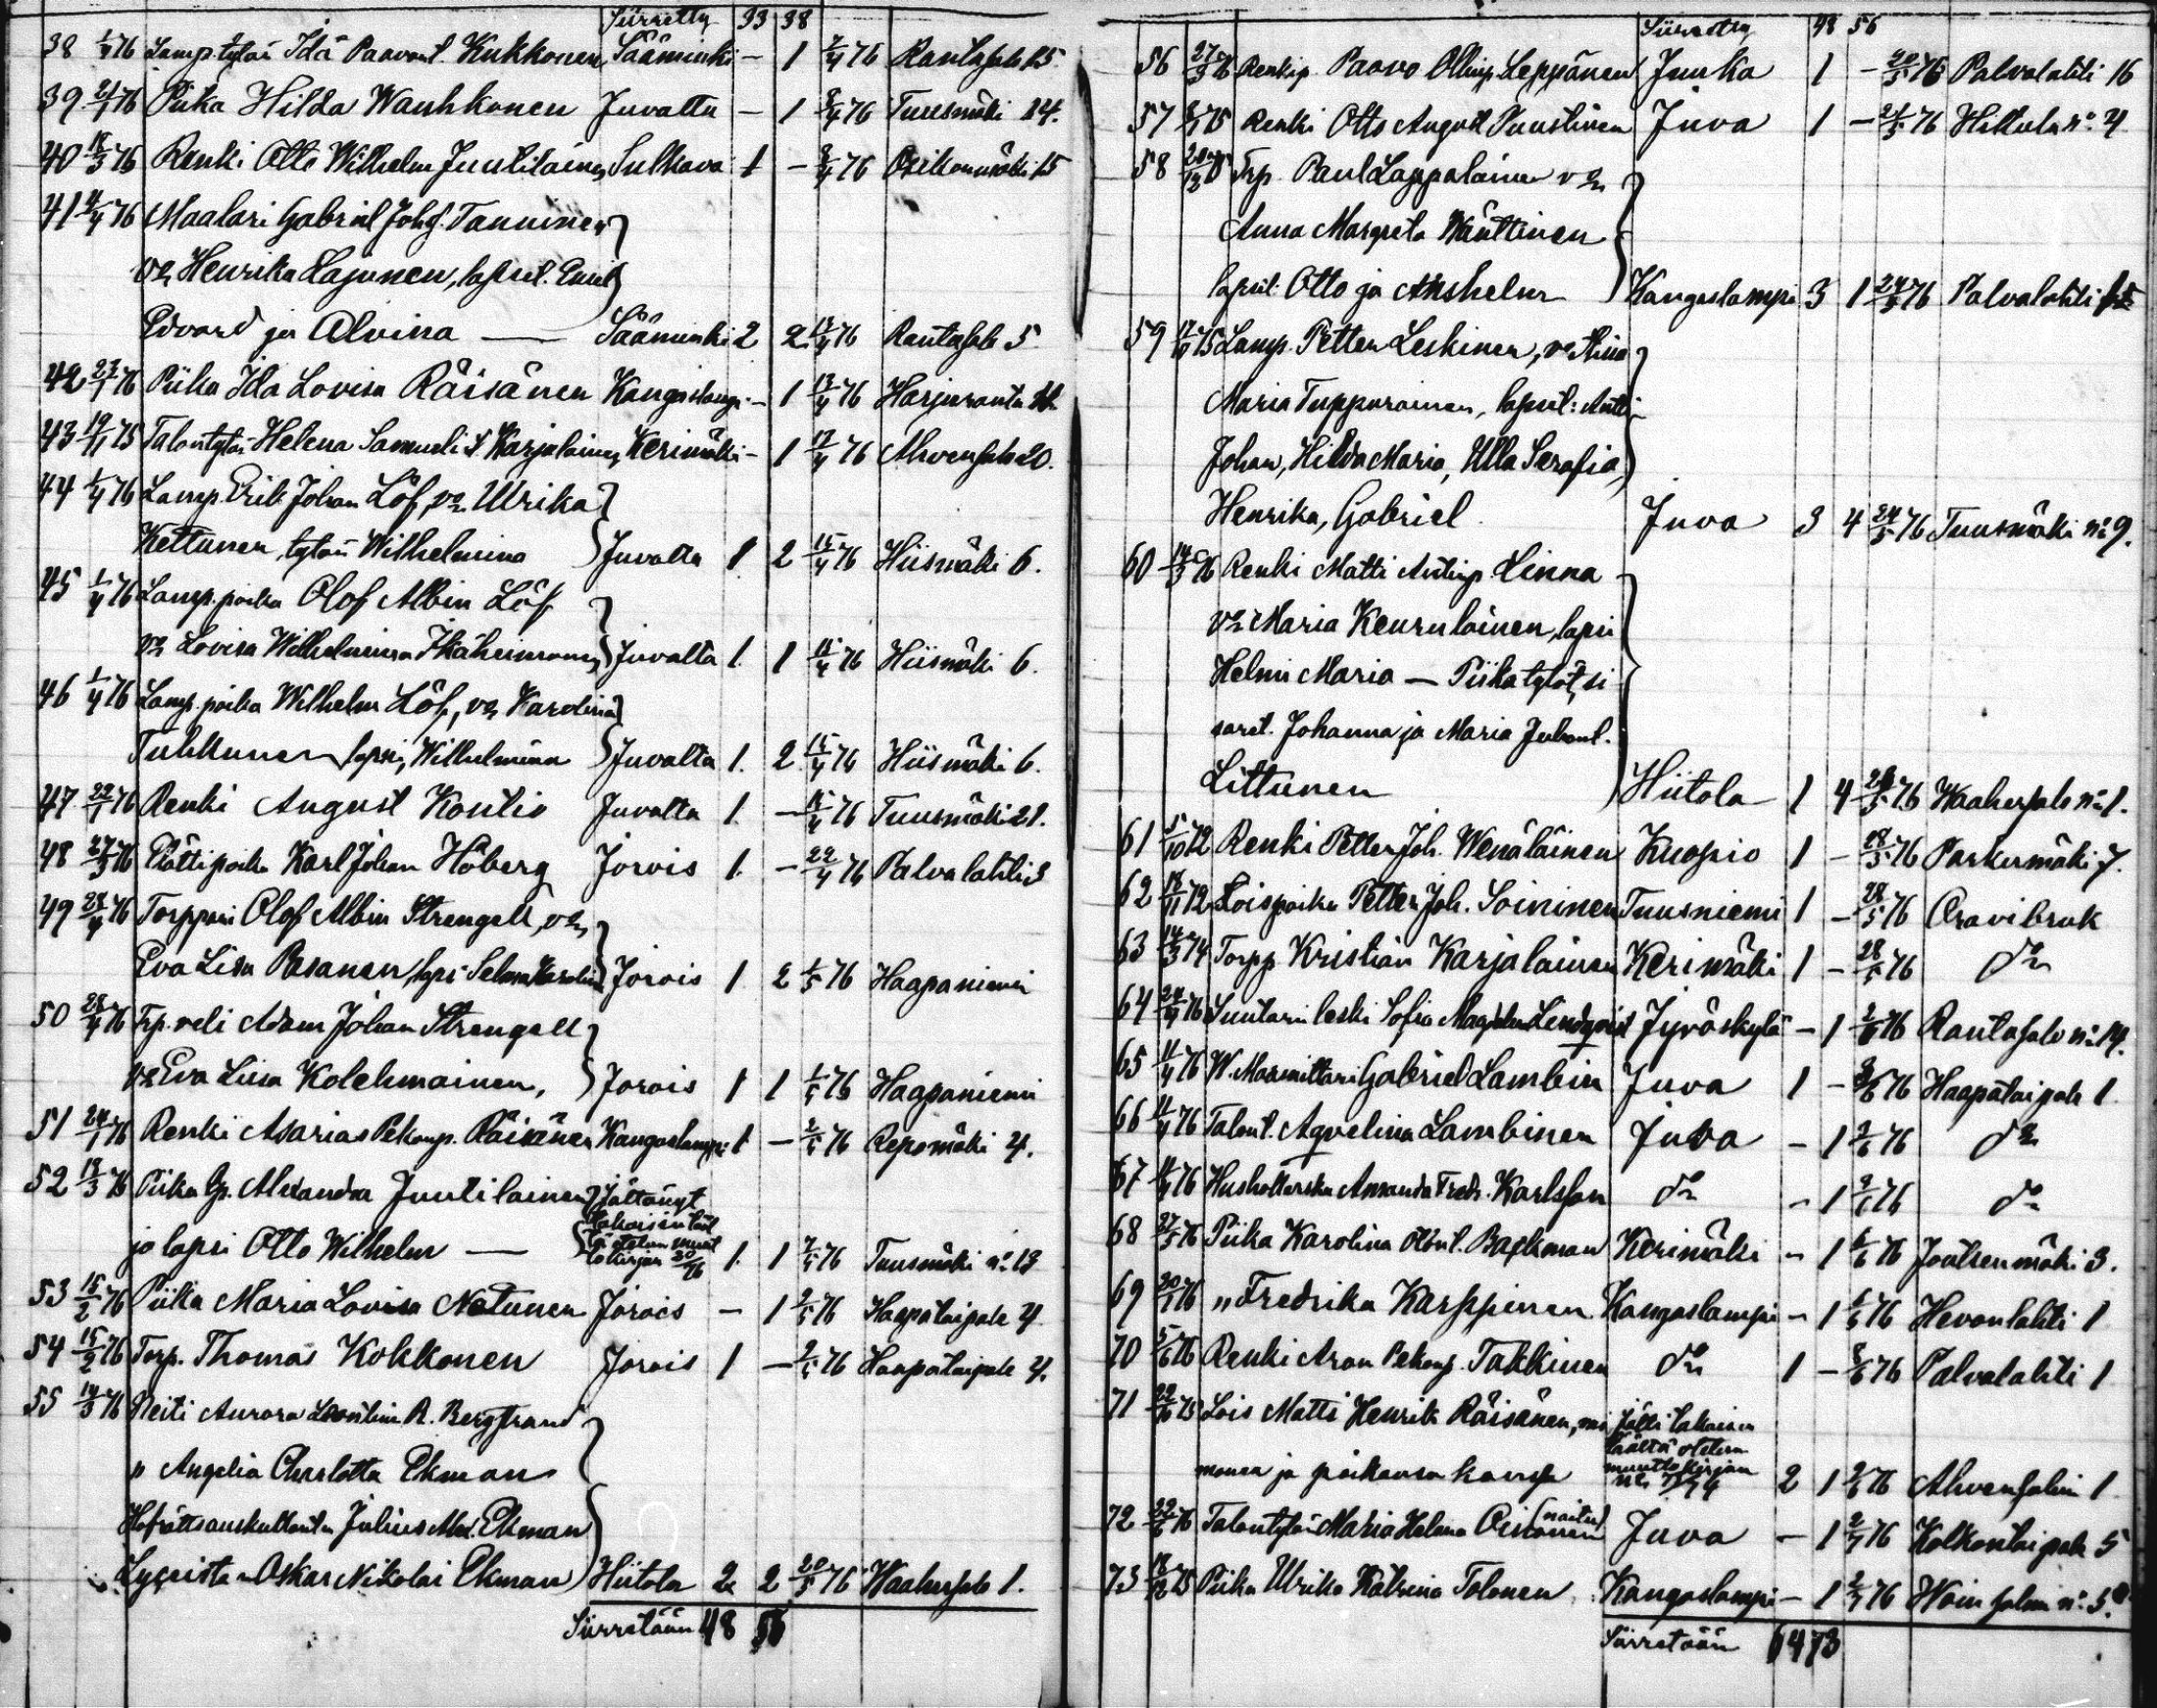 Siirretty 33 38
38 1/4 76 Lamp. tytär Ida Paavont. Kukkonen Sääminki — 1 7/4 76 Rantasalo 15
39 21/1 76 Piika Hilda Wauhkonen Juvalta — 1 8/4 76 Tuusmäki 14.
40 18/3 76 Renki Otto Wilhelm Juutilainen Sulkava 1 — 8/4 76 Osikonmäki 15
41 4/4 76 Maalari Gabriel Johs. Tanninen
vo Henrika Lajunen, lapset. Emil
Edvard ja Alvina — Sääminki 2 2 13/4 76 Rantasalo 5
42 27/1 76 Piika Ida Lovisa Räisänen Kangaslampi — 1 13/4 76 Harjuranta
43 19/11 75 Talontytär Helena Samuelit. Karjalainen Kerimäki — 1 17/4 76 Ahvensalo 20.
44 1/4 76 Lamp. Erik Johan Löf, vo Ulrika
Kettunen, tytär Wilhelmina Juvalta 1 2 15/4 76 Hiismäki 6.
45 1/4 76 Lamp. poika Olof Albin Löf
vo Lovisa Wilhelmina Ikäheimonen Juvalta 1. 1 15/4 76 Hiismäki 6.
46 1/4 76 Lamp. poika Wilhelm Löf, vo Karolina
Tuhkunen lapsi, Wilhelmina Juvalta 1. 2 15/4 76 Hiismäki 6.
47 22/1 76 Renki August Kontio Juvalta 1. — 15/4 76 Tuusmäki 21.
48 27/3 76 Plättipoika Karl Johan Höberg Jorois 1. — 22/4 76 Palvalahti 3
49 28/4 76 Torppari Olof Albin Strengell, vo
Eva Lisa Pasanen, lapsi Selma Karolina Jorois 1 2 1/5 76 Haapaniemi
50 28/4 76 Trp. veli Adam Johan Strengell
vo Eva Liisa Kolehmainen, Jorois 1 1 1/5 76 Haapaniemi
51 24/1 76 Renki Asarias Pekanp. Räisänen Kangaslampi 1 — 2/5 76 Repomäki 4.
52 18/3 76 Piika Alexandra Juutilainen jättänyt
takaisin tääl
tä otetun muut
tokirjan 20/76
ja lapsi Otto Wilhelm — 1. 1 7/5 76 Tuusmäki no 13
53 15/2 76 Piika Maria Lovisa Natunen Jorois — 1 2/5 76 Haapataipale 4
54 15/2 76 Torp. Thomas Kokkonen Jorois 1 — 2/5 76 Haapataipale 4.
55 14/3 76 Neiti Aurora R. Bergstrand
" Angelia Charlotta Ekman
Hofrättsauskultanten Julius Ekman
Lyseista Oskar Nikolai Ekman Hiitola 2 2 20/5 76 Waahersalo 1.
Siirretään 48 56
Siirretty 48 56
56 27/3 76 Renkip. Paavo Ollinp. Leppänen Juuka 1 — 20/5 76 Palvalahti 16
57 75 Renki Otto August Puustinen Juva 1 — 21/5 76 Hiltula no 4
58 20/12 75 Trp. Paul Lappalainen vo
Anna Margreta Wänttinen
lapset: Otto ja Anshelm Kangaslampi 3 1 24/5 76 Palvalahti
59 75 Lamp. Petter Leskinen, vo Stina
Maria Tuppurainen, lapset: Antti
Johan, Hilda Maria, Ulla Serafia,
Henrika, Gabriel Juva 3 4 24/5 76 Tuusmäki no 9.
60 14/3 76 Renki Matti Antinp. Linna
vo Maria Keurulainen, lapsi
Helmi Maria — Piikatytöt, si
saret. Johanna ja Maria Juhont.
Littunen Hiitola 1 4 28/5 76 Waahersalo no 1.
61 5/10 72 Renki Petter Joh. Wenäläinen Kuopio 1 — 28/5 76 Parkumäki 7.
62 18/11 72 Loispoika Petter Joh. Soininen Tuusniemi 1 — 28/5 76 Oravibruk
63 14/3 74 Torpp Kristian Karjalainen Kerimäki 1 — 28/5 76 do
64 24/4 76 Suutarin leski Sofia Magdalena Lindqvist Jyväskylä — 1 2/6 76 Rantasalo no 14.
65 11/4 76 W. Maanmittari Gabriel Lambin Juva 1 — 3/6 76 Haapataipale 1
66 11/4 76 Talont. Aqvelina Lambinen Juva — 1 3/6 76 do
67 11/4 76 Hushollerska Amanda Fredr. Karlsson do — 1 3/6 76 do
68 27/5 76 Piika Karolina Ollint. Backman Kerimäki — 1 6/6 76 Joutsenmäki 3.
69 20/1 76 " Fredrika Karppinen Kangaslampi — 1 6/6 76 Hevonlahti 1
70 5/6 76 Renki Aron Pekanp. Takkinen do 1 — 8/6 76 Palvalahti 1
71 22/10 75 Lois Matti Henrik Räisänen, vai jätti takaisin
täältä otetun
muuttokirjan
no 75/74
monsa ja poikansa kanssa 2 1 2/6 76 Ahvensalmi 1
72 22/6 76 Talontytär Maria Helena (naitu) Juva — 1 2/7 76 Kolkontaipale 5
73 18/12 75 Piika Ulrika Katrina Tolonen Kangaslampi — 1 2/7 76 Woinsalmi no 5.
Siirretään 64 73